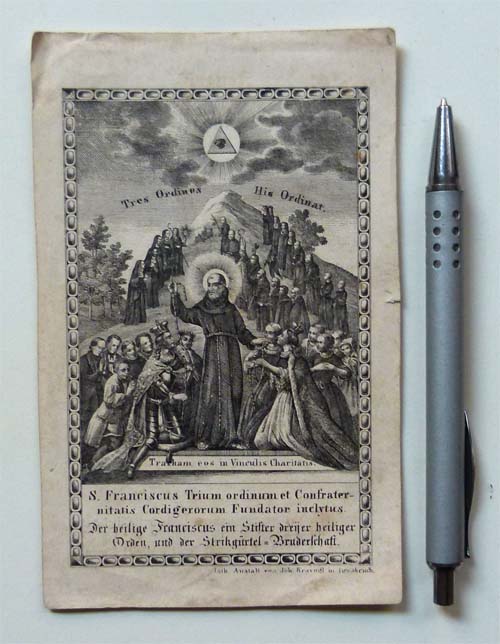 Tres Ordines His Ordinat.
Traham eos in Vinculis Charitatis.
S. Franciscus Trium ordinum et Confrater-
nitatis Cordigerorum Fundator inclytus.
Der heilige Franciscus ein Stifter dreijer heiliger
Orden, und der Strikgürtel=Bruderschaft.
Lith. Anstalt von Joh. in Innsbruck.